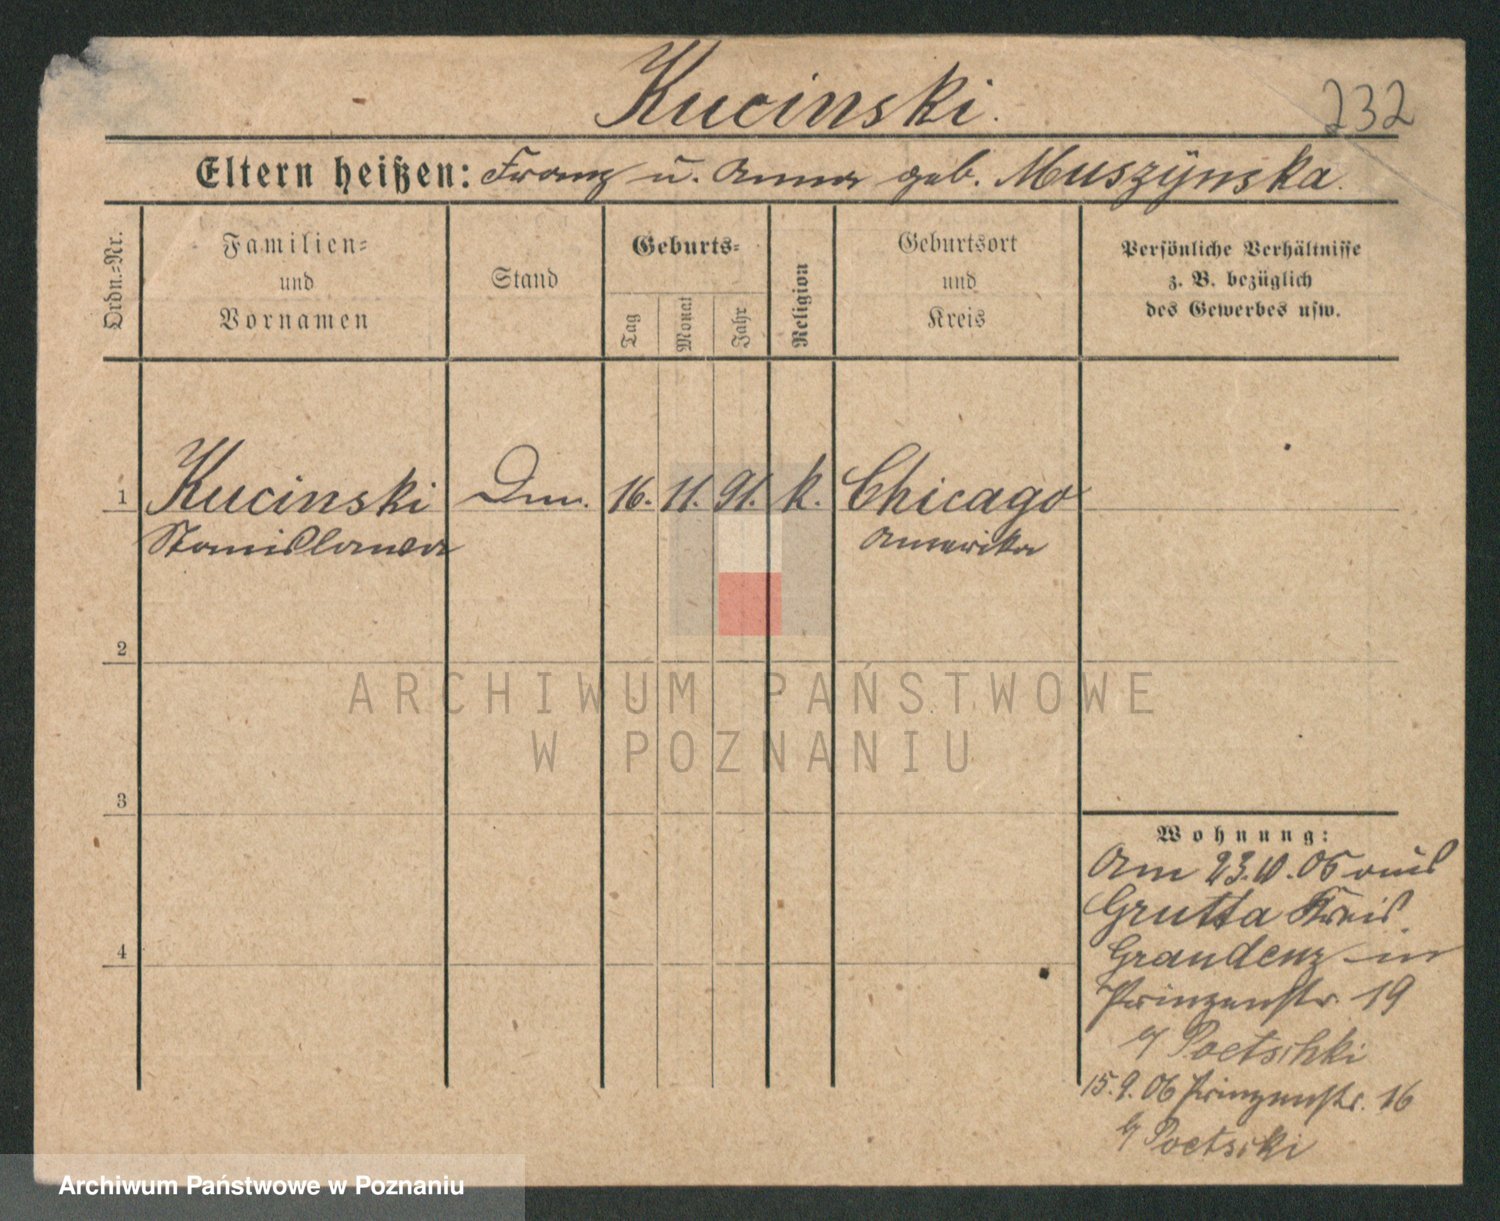 Kucinski.
232
Eltern heißen: Franz u. Anna geb. Muszÿnska.
Ordn.=Nr.
Familien=
und
Vornamen
Stand
Geburts=
Tag
Monat
Jahr
Religion
Geburtsort
und
Kreis
Persönliche Verhältnisse
z. B. bezüglich
des Gewerbes usw.
1 Kucinski 16. 11. 91. k. Chicago
Stanislawa Amerika
2
ARCHIWUM PAŃSTWOWE
W POZNANIU
3
Wohnung:
Am 23.10.05 aus
Grutta Kreis
4
Graudenz in
Prinzenstr. 19
b/ Poetschki
15.9.06 Prinzenstr. 16
b/ Poetschki
Archiwum Państwowe w Poznaniu